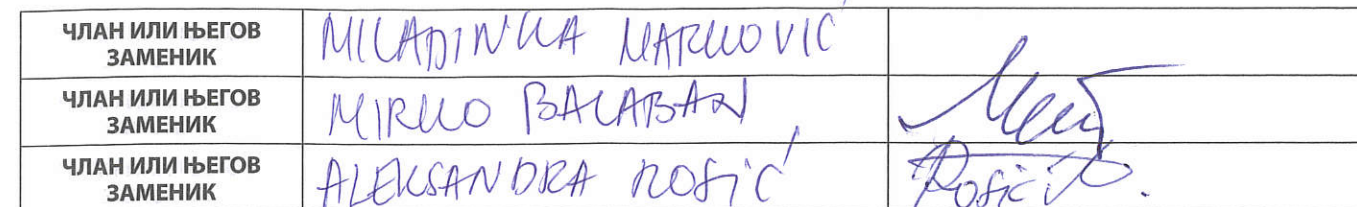 ЧЛАН ИЛИ ЊЕГОВ
ЗАМЕНИК
MILADINKA MARKOVIĆ
ЧЛАН ИЛИ ЊЕГОВ
ЗАМЕНИК
MIRKO BALABAN
ЧЛАН ИЛИ ЊЕГОВ
ЗАМЕНИК
ALEKSANDRA ROSIĆ
Rosić